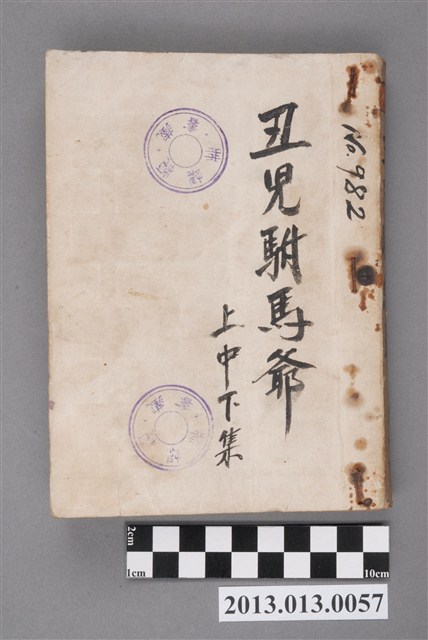 No. 982
丑児駙馬爺
上中下集
2cm
1cm
10cm
2013.013.0057